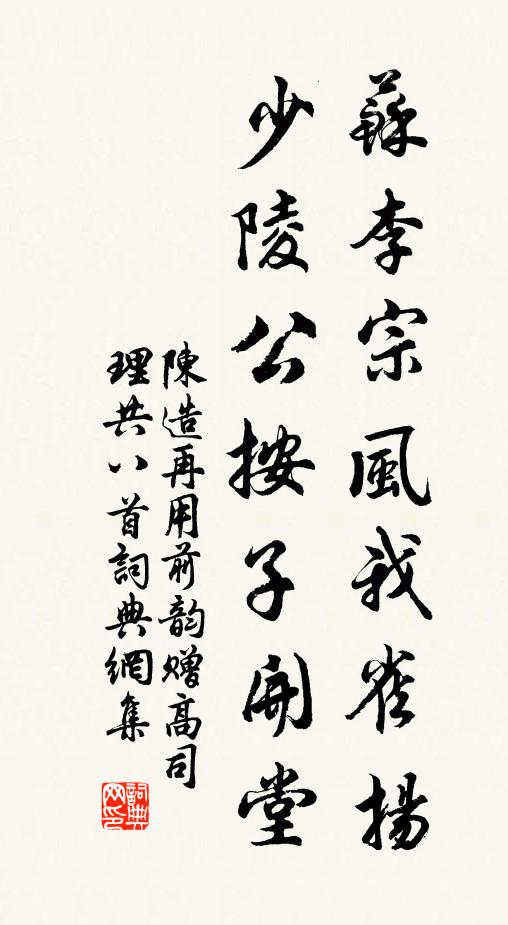 蘇李宗風我雀揚
少陵公按子開堂
陳造再用前韵贈高司
理共八首詞典網集
詞典网印